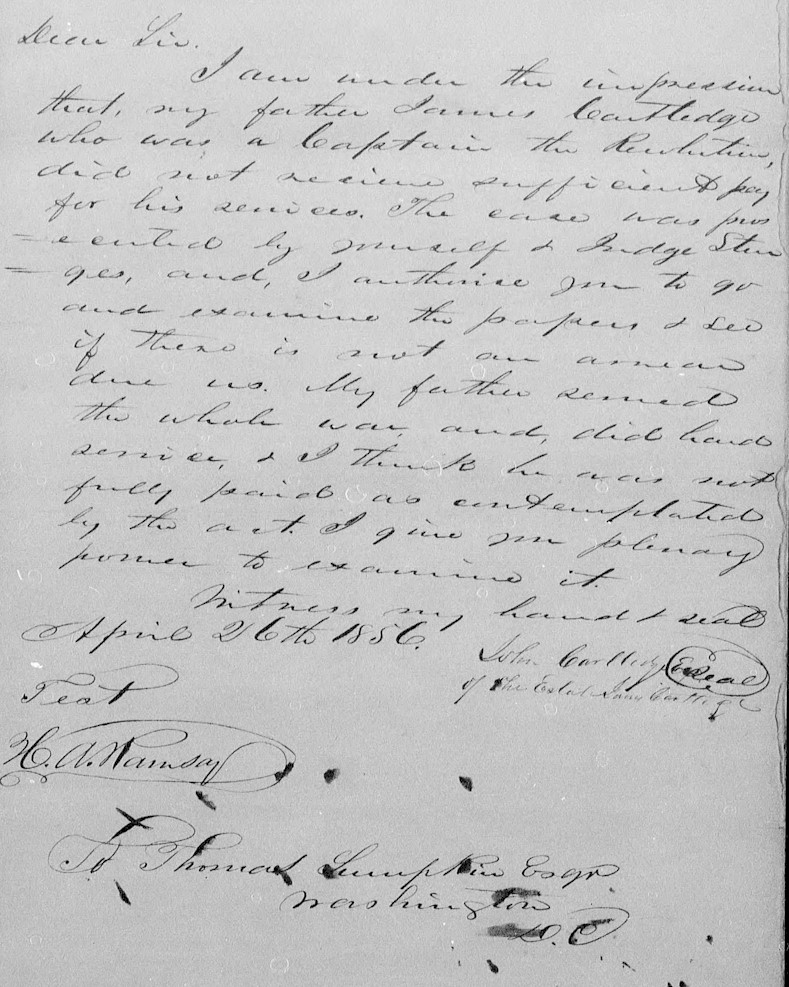 Dear Sir.
I am under the impression
that, my father James Cartledge
who was a Captain the Revolution,
did not recieve sufficient pay
for his services. The case was pros
=ecuted by myself & Judge Stur
=ges, and, I authorise you to go
and examine the papers & see
if there is not an arrear
due us. My father served
the whole war, and, did hard
service, & I think he was not
fully paid as contemplated
by the act. I give you plenary
power to examine it.
Witness my hand & seal
April 26th 1856.
John Cartledge Ex Seal
of the Estat James Cartledge
Test
H. A. Ramsay
To Thomas Lumpkin Esqr
Washington
D. C